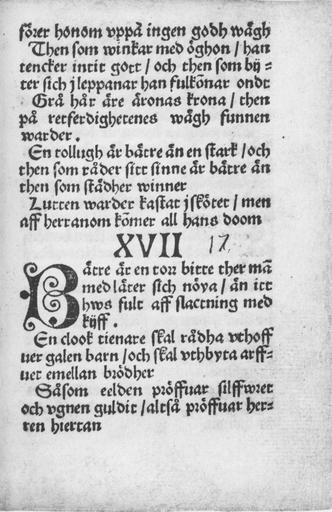 förer honom vppå ingen godh wägh
Then som winkar med öghon / han
tencker intit gott / och then som bij=
ter sich j leppanar han fulkõnar ondt
Grå hår äre äronas krona / then
på retferdighetenes wägh funnen
warder.
En tollugh är bätre än en stark / och
then som råder sitt sinne är bätre än
then som städher winner
Lutten warder kastat j skötet / men
aff herranom kõmer all hans doom
XVII 17
Bätre är en torr bitte ther mã
med läter sich nöya / än itt
hws fult aff slactning med
kijff.
En clook tienare skal rådha vthoff
uer galen barn / och skal vthbyta arff=
uet emellan brödher
Såsom eelden pröffuar silffwret
och vgnen guldit / altså pröffuar her=
ren hiertan